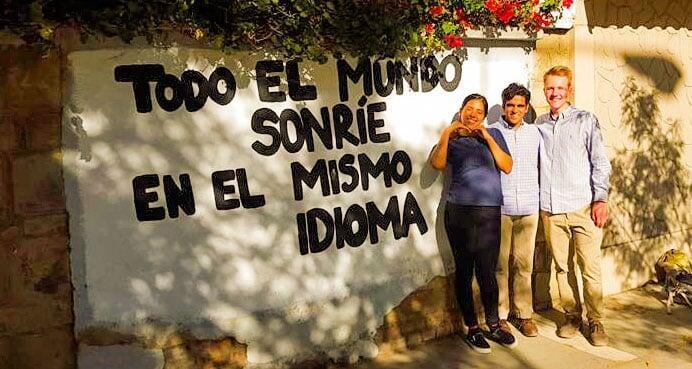 TODO EL MUNDO
SONRÍE
EN EL MISMO
IDIOMA